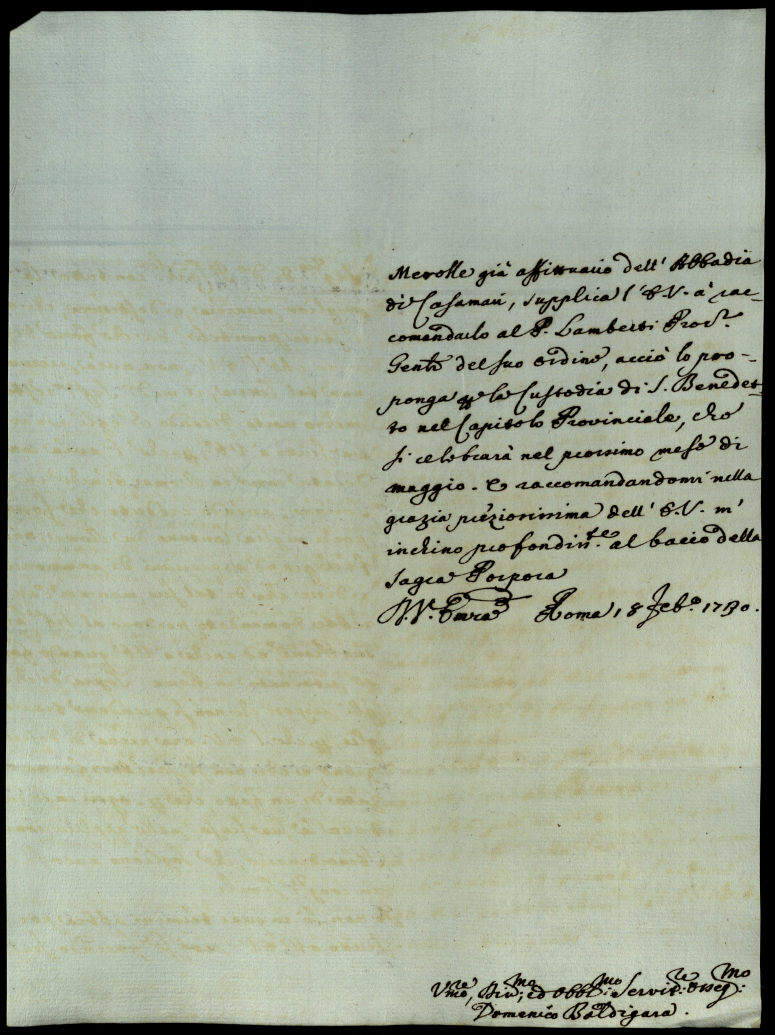 Merolle già affittuario dell' Abbadia
di Casamari, supplica l' E.V. à rac-
comandarlo al P. Lamberti Proc.r
Gen.le del suo ordine, acciò lo pro-
ponga p la Custodia di S. Benedet-
to nel Capitolo Provinciale, che
si celebrarà nel prossimo mese di
maggio. E raccomandandomi nella
grazia preziosissima dell' E.V. m'
inchino profondis.te al bacio della
Sagra Porpora
Roma 18 Feb.o 1730.
Vme, Div.mo, ed Obbl.mo Servit.re Osseq.mo
Domenico Baldigara.